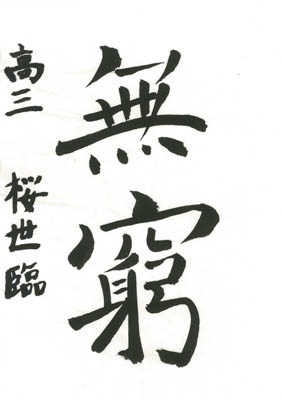 無窮
高三 桜世臨